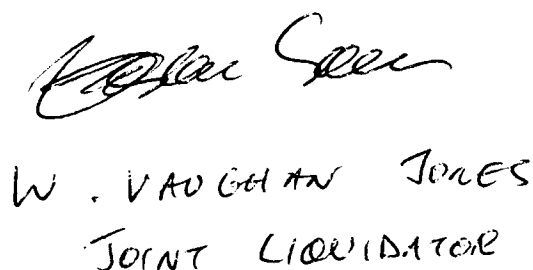 W. VAUGHAN JONES
JOINT LIQUIDATOR